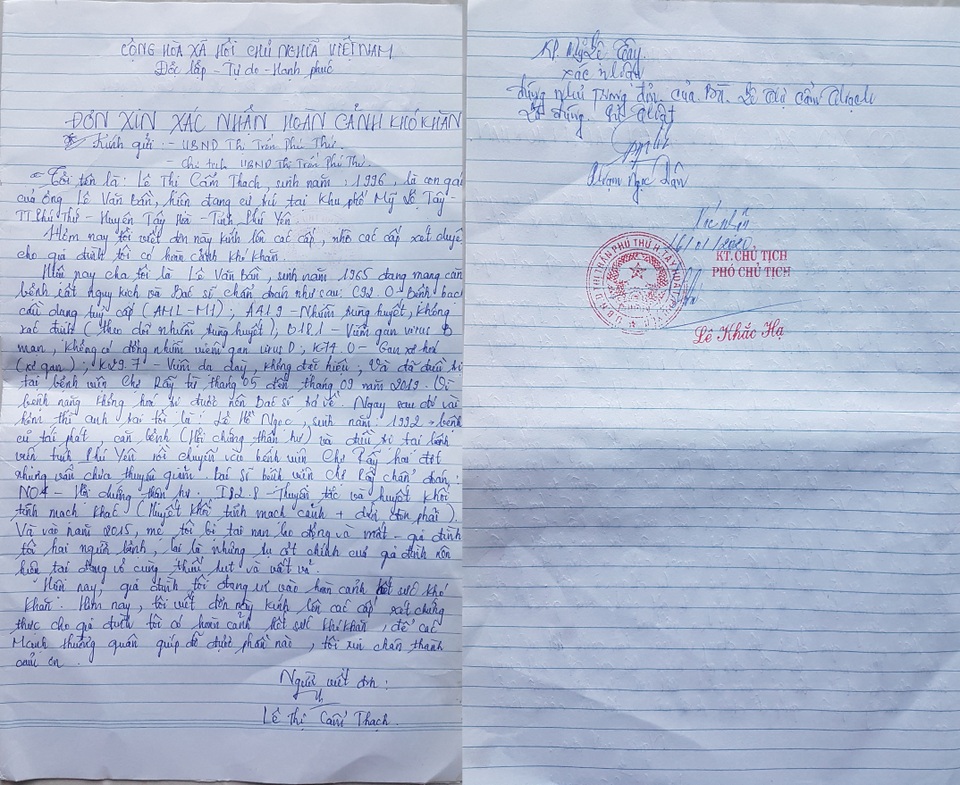 CỘNG HÒA XÃ HỘI CHỦ NGHĨA VIỆT NAM
Độc lập - Tự do - Hạnh phúc
ĐƠN XIN XÁC NHẬN HOÀN CẢNH KHÓ KHĂN
Kính gửi: - UBND Thị Trấn Phú Thứ.
- Chủ tịch UBND Thị Trấn Phú Thứ.
Tôi tên là: Lê Thị Cẩm Thạch, sinh năm: 1996, là con gái
của ông Lê Văn Bán, hiện đang cư trú tại Khu phố Mỹ Lệ Tây -
TT Phú Thứ - Huyện Tây Hòa - Tỉnh Phú Yên.
Hôm nay tôi viết đơn này kính lên các cấp, nhờ các cấp xét duyệt
cho gia đình tôi có hoàn cảnh khó khăn.
Hiện nay cha tôi là Lê Văn Bán, sinh năm 1965 đang mang căn
bệnh rất nguy kịch và Bác sĩ chẩn đoán như sau: C92.0 - Bệnh bạch
cầu dạng tủy cấp (AML-M1); A41.9 - Nhiễm trùng huyết, không
xác định (theo dõi nhiễm trùng huyết), B18.1 - Viêm gan virus B
mạn, không có đồng nhiễm viêm gan virus D; K74.0 - Gan xơ hóa
(xơ gan); K29.7 - Viêm dạ dày, không đặc hiệu, và đã điều trị
tại bệnh viện Chợ Rẫy từ tháng 05 đến tháng 09 năm 2019. Vì
bệnh nặng không hóa trị được nên Bác sĩ trả về. Ngay sau đó vài
hôm thì anh trai tôi là: Lê Hồ Ngọc, sinh năm: 1992 bệnh
cũ tái phát, căn bệnh (Hội chứng thận hư) và điều trị tại bệnh
viện tỉnh Phú Yên rồi chuyển vào bệnh viện Chợ Rẫy hai đợt
nhưng vẫn chưa thuyên giảm. Bác sĩ bệnh viện Chợ Rẫy chẩn đoán:
N04 - Hội chứng thận hư. I82.8 - Thuyên tắc và huyết khối
tĩnh mạch khác (Huyết khối tĩnh mạch cảnh + dưới đòn phải).
Và vào năm 2015, mẹ tôi bị tai nạn lao động và mất - gia đình
tôi hai người bệnh, lại là những trụ cột chính của gia đình nên
hiện tại đang vô cùng thiếu hụt và vất vả.
Hôm nay, gia đình tôi đang rơi vào hoàn cảnh hết sức khó
khăn. Hôm nay, tôi viết đơn này kính lên các cấp xét chứng
thực cho gia đình tôi có hoàn cảnh hết sức khó khăn, để các
Mạnh thường quân giúp đỡ được phần nào, tôi xin chân thành
cảm ơn.
Người viết đơn:
Lê Thị Cẩm Thạch
KP Mỹ Lệ Tây
xác nhận
đúng như trong đơn của Lê Thị Cẩm Thạch
là đúng sự thật
Phạm Ngọc Dân
Xác nhận
16/01/2020
KT. CHỦ TỊCH
PHÓ CHỦ TỊCH
U.B.N.D THỊ TRẤN PHÚ THỨ H. TÂY HÒA
Lê Khắc Hạ